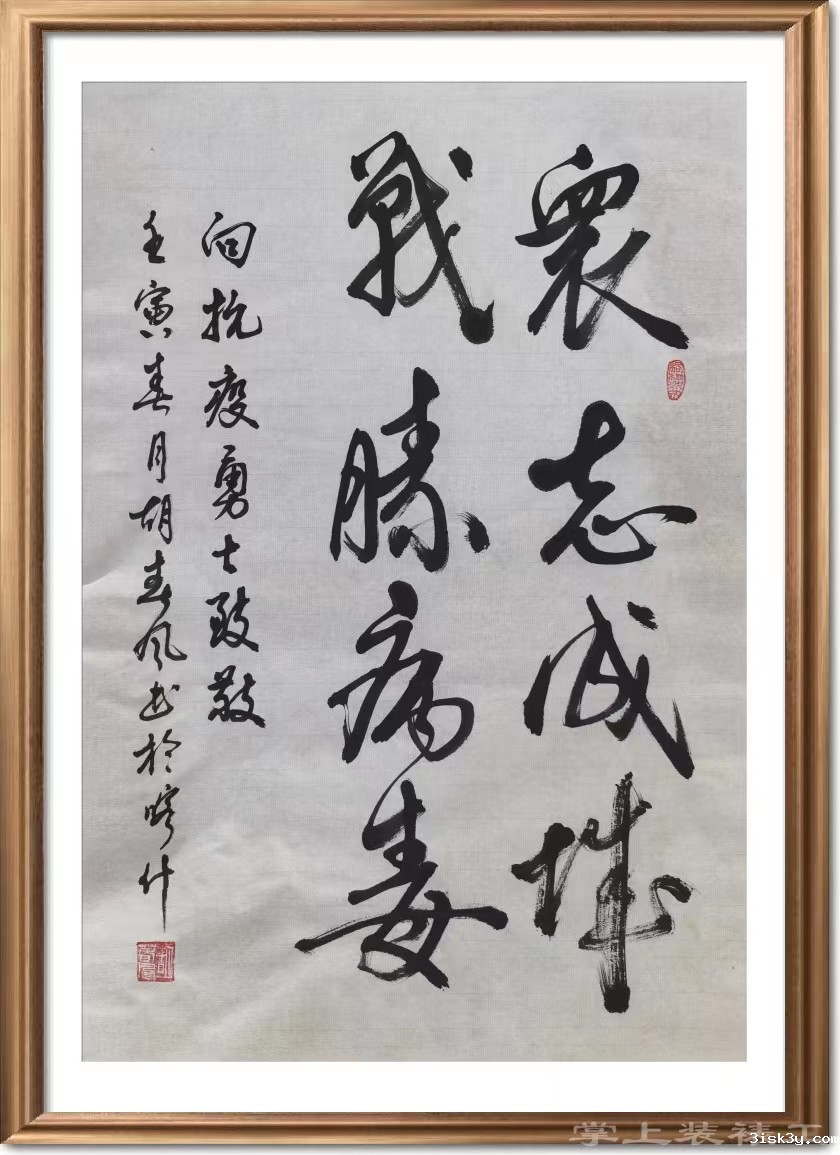 眾志成城
戰勝病毒
向抗疫勇士致敬
壬寅春月胡春风书於喀什
掌上装裱
3isk3y.com